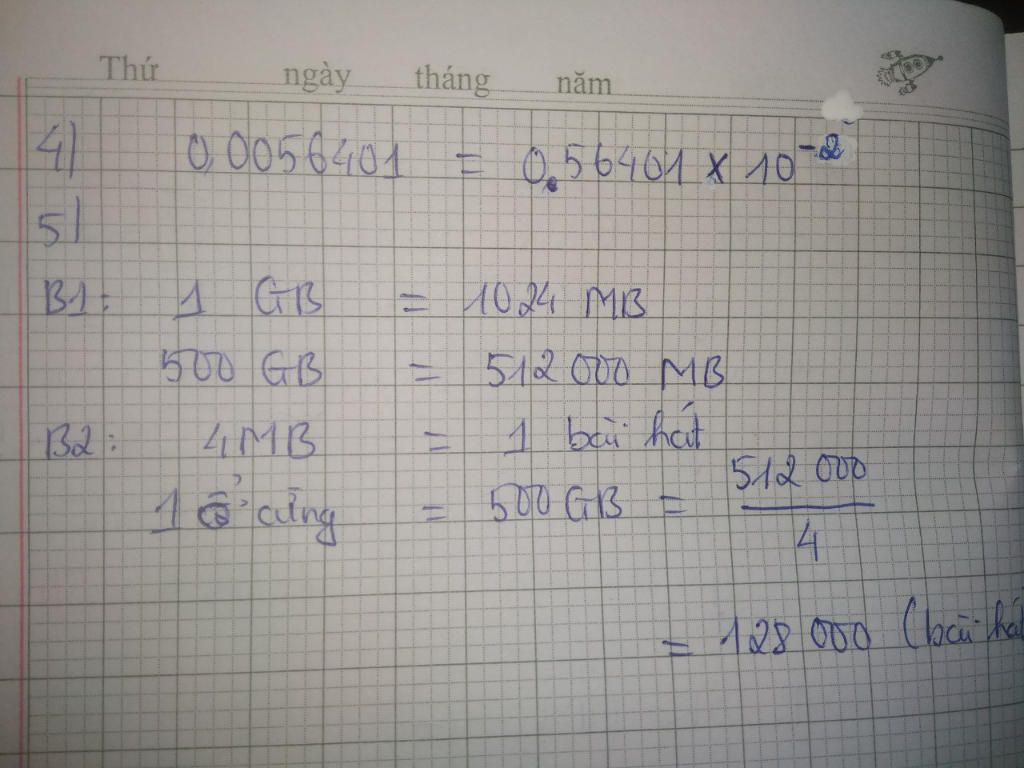 Thứ ngày tháng năm
4) 0,0056401 = 0.56401 x 10⁻²
5)
B1: 1 GB = 1024 MB
500 GB = 512 000 MB
B2: 4 MB = 1 bài hát
1 ổ cứng = 500 GB = 512 000 / 4
= 128 000 (bài há